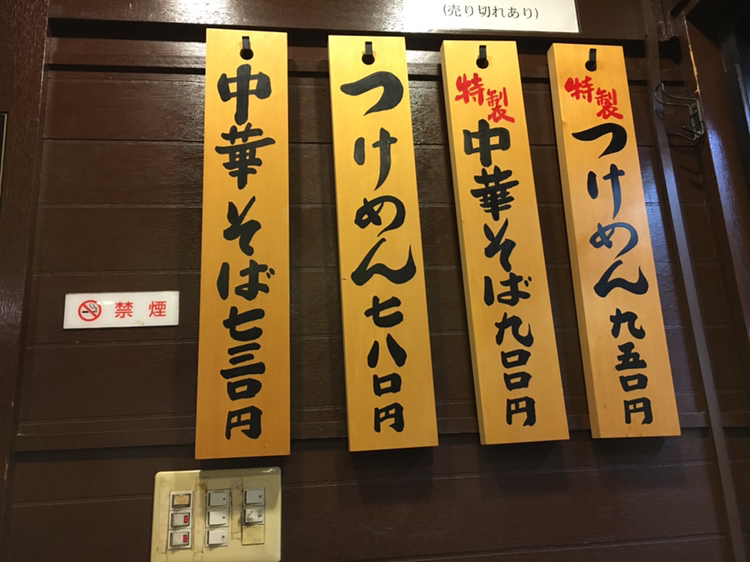 (売り切れあり)
特製
つけめん九五〇円
特製
中華そば九〇〇円
つけめん七八〇円
中華そば七三〇円
禁煙